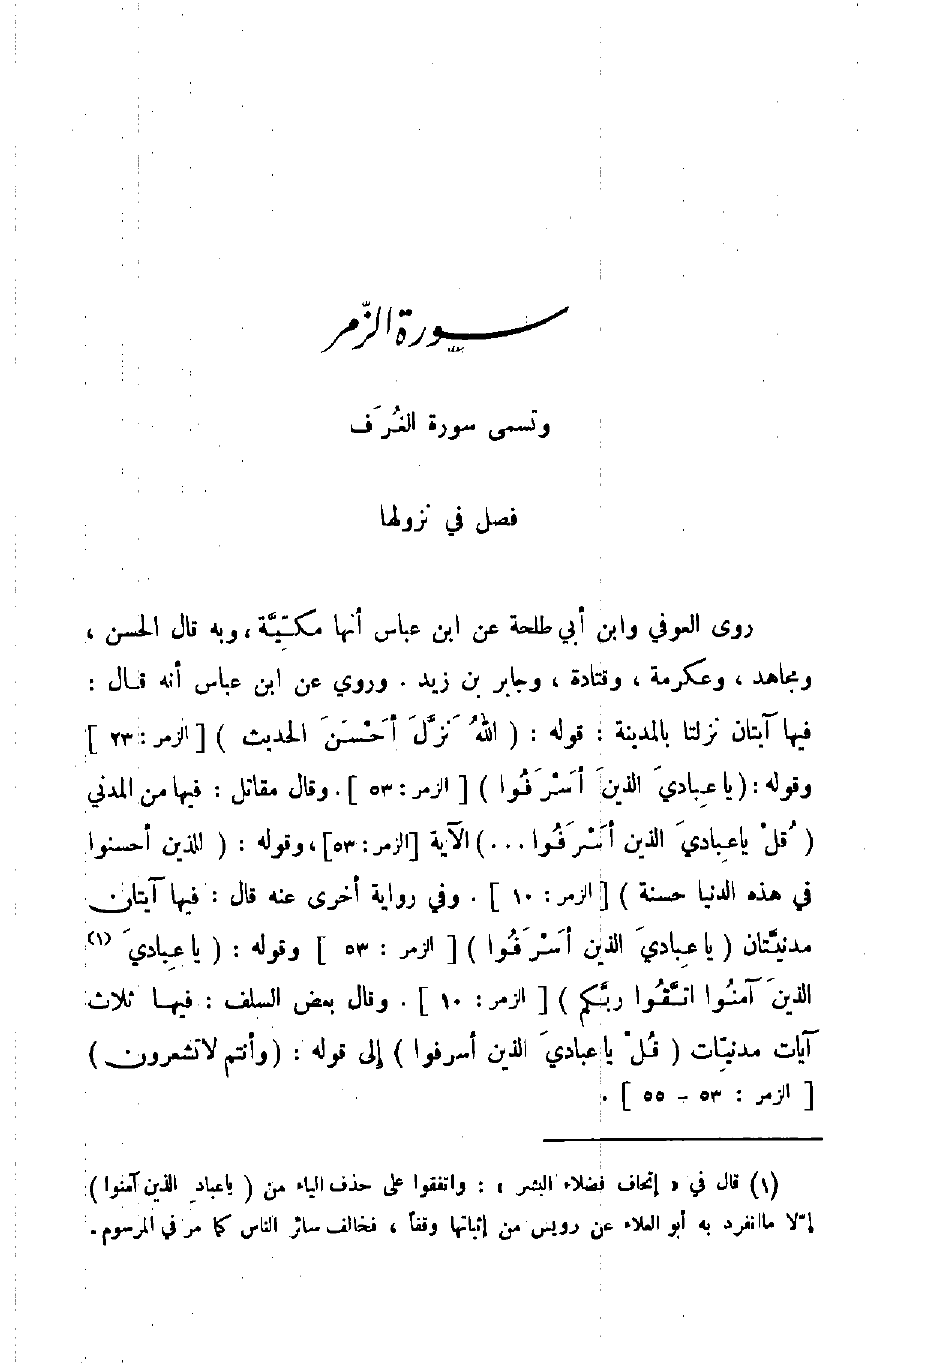 سورة الزّمر
وتسمى سورة الغُرَف
فصل في نزولها
روى العوفي وابن أبي طلحة عن ابن عباس أنها مكيّة ، وبه قال الحسن ،
ومجاهد ، وعكرمة ، وقتادة ، وجابر بن زيد . وروي عن ابن عباس أنه قال :
فيها آيتان نزلتا بالمدينة : قوله : ( اللهُ نَزَّلَ أَحْسَنَ الحديث ) [ الزمر : ٢٣ ]
وقوله : ( يا عِبادي َ الذين َ أَسْرَفُوا ) [ الزمر : ٥٣ ] . وقال مقاتل : فيها من المدني
( ُقلْ ياعِبادي َ الذين أَسْرَفُوا ... ) الآية [الزمر : ٥٣] ، وقوله : ( للذين أحسنوا
في هذه الدنيا حسنة ) [ الزمر : ١٠ ] . وفي رواية أخرى عنه قال : فيها آيتان
مدنيَّتان ( يا عِبادي َ الذين أَسْرَفُوا ) [ الزمر : ٥٣ ] وقوله : ( يا عِبادي َ (١)
الذين َ آمنُوا اتَّقُوا ربَّكم ) [ الزمر : ١٠ ] . وقال بعض السلف : فيها ثلاث
آيات مدنيّات ( قُلْ يا عبادي َ الذين أسرفوا ) إلى قوله : ( وأنتم لا تشعرون )
[ الزمر : ٥٣ - ٥٥ ] .
(١) قال في « إتحاف فضلاء البشر » : واتفقوا على حذف الياء من ( ياعباد ِ الذين آمنوا )
إلّا ماانفرد به أبو العلاء عن رويس من إثباتها وقفاً ، فخالف سائر الناس كما مر في المرسوم .